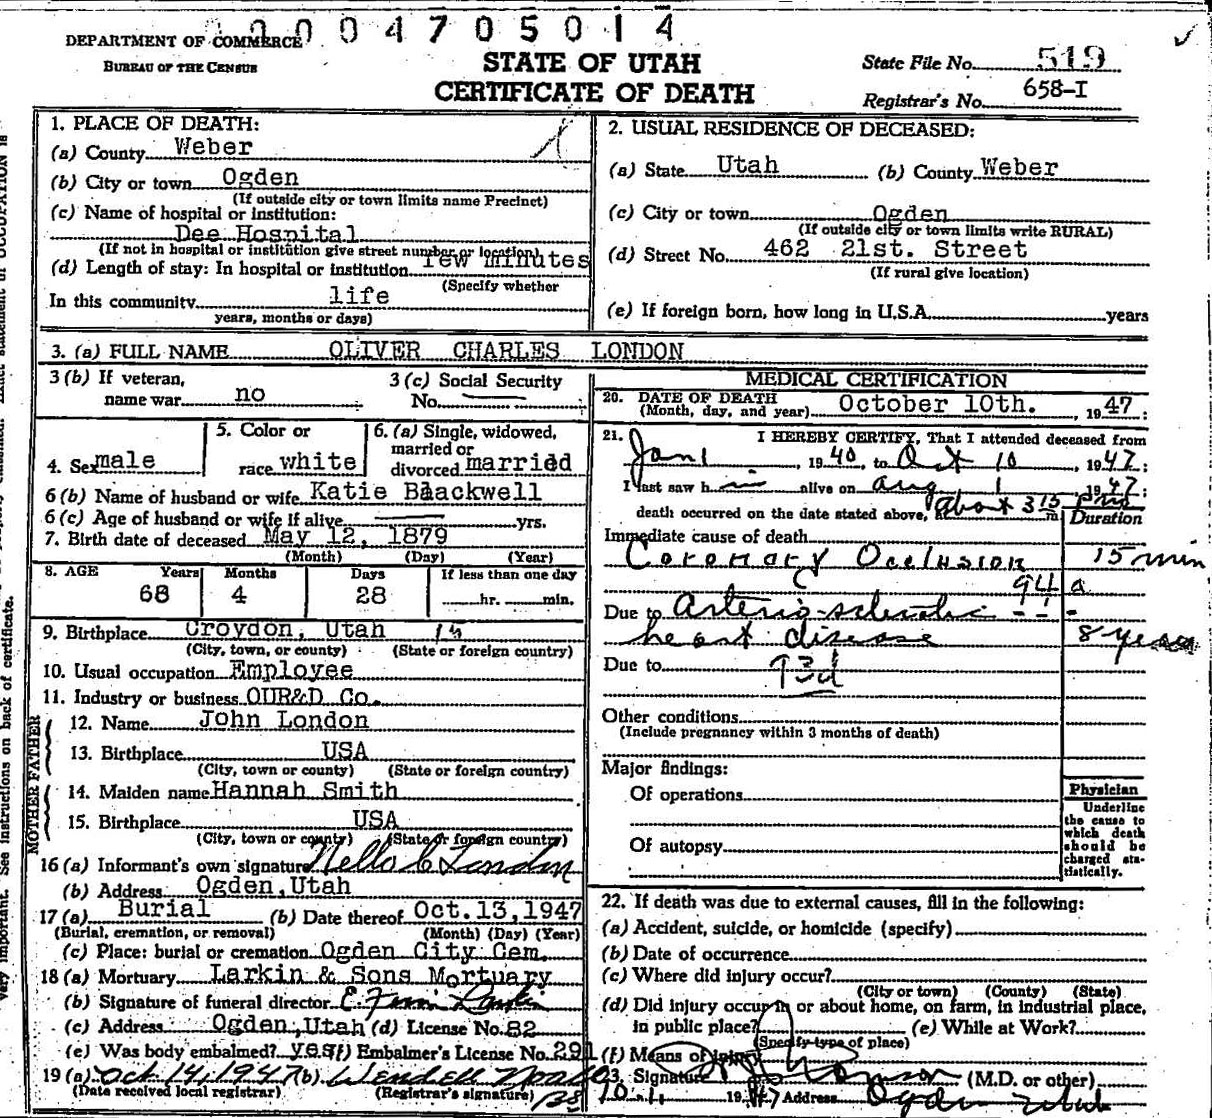 0004705014
DEPARTMENT OF COMMERCE
BUREAU OF THE CENSUS
STATE OF UTAH
CERTIFICATE OF DEATH
State File No. 519
Registrar's No. 658-I
1. PLACE OF DEATH:
(a) County Weber
(b) City or town Ogden
(If outside city or town limits name Precinct)
(c) Name of hospital or institution:
Dee Hospital
(If not in hospital or institution give street number or location)
(d) Length of stay: In hospital or institution few minutes
(Specify whether
In this community life
years, months or days)
2. USUAL RESIDENCE OF DECEASED:
(a) State Utah (b) County Weber
(c) City or town Ogden
(If outside city or town limits write RURAL)
(d) Street No. 462 21st. Street
(If rural give location)
(e) If foreign born, how long in U.S.A. years
3. (a) FULL NAME OLIVER CHARLES LONDON
3 (b) If veteran, name war no
3 (c) Social Security No.
4. Sex male
5. Color or race white
6. (a) Single, widowed, married or divorced married
6 (b) Name of husband or wife Katie Blackwell
6 (c) Age of husband or wife if alive yrs.
7. Birth date of deceased May 12, 1879
(Month) (Day) (Year)
8. AGE Years Months Days If less than one day
68 4 28 hr. min.
9. Birthplace Croydon, Utah
(City, town, or county) (State or foreign country)
10. Usual occupation Employee
11. Industry or business OUR&D Co.
FATHER
12. Name John London
13. Birthplace USA
(City, town or county) (State or foreign country)
MOTHER
14. Maiden name Hannah Smith
15. Birthplace USA
(City, town or county) (State or foreign country)
16 (a) Informant's own signature Nello C London
(b) Address Ogden, Utah
17 (a) Burial (b) Date thereof Oct. 13, 1947
(Burial, cremation, or removal) (Month) (Day) (Year)
(c) Place: burial or cremation Ogden City Cem.
18 (a) Mortuary Larkin & Sons Mortuary
(b) Signature of funeral director E. Larkin
(c) Address Ogden, Utah (d) License No. 82
(e) Was body embalmed? yes (f) Embalmer's License No. 291
19 (a) Oct 14, 1947 (b) Wendell
(Date received local registrar) (Registrar's signature)
MEDICAL CERTIFICATION
20. DATE OF DEATH
(Month, day, and year) October 10th. , 1947 :
21. I HEREBY CERTIFY, That I attended deceased from
Jan 1 , 1940, to Oct 10 , 1947 :
I last saw h im alive on Aug 1 1947 :
death occurred on the date stated above, at about 3 15 P m
Duration
Immediate cause of death
Coronary Occlusion 15 min
94 a
Due to Arterio-sclerotic
heart disease 8 years
Due to 93d
Other conditions
(Include pregnancy within 3 months of death)
Major findings:
Of operations
Of autopsy
Physician
Underline the cause to which death should be charged statistically.
22. If death was due to external causes, fill in the following:
(a) Accident, suicide, or homicide (specify)
(b) Date of occurrence
(c) Where did injury occur?
(City or town) (County) (State)
(d) Did injury occur in or about home, on farm, in industrial place,
in public place? (e) While at Work?
(Specify type of place)
(f) Means of injury
23. Signature (M.D. or other)
1947 Address Ogden Utah
very important. See instructions on back of certificate.